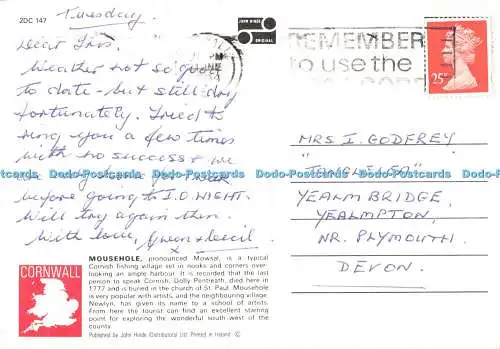 Tuesday.
ZDC 147
JOHN HINDE
ORIGINAL
Dear Iris,
Weather not so good
to date - but still dry
fortunately. Tried to
ring you a few times
with no success & we
before going to I.O.WIGHT.
Will try again then.
With love, Gwen & Cecil
x
REMEMBER
to use the
25
MRS I. GODFREY
"
YEALMBRIDGE,
YEALMPTON,
NR. PLYMOUTH.
DEVON.
Dodo-Postcards Dodo-Postcards Dodo-Postcards Dodo-Postcards
CORNWALL
MOUSEHOLE, pronounced Mowsal, is a typical
Cornish fishing village set in nooks and corners over-
looking an ample harbour. It is recorded that the last
person to speak Cornish, Dolly Pentreath, died here in
1777 and is buried in the church of St. Paul. Mousehole
is very popular with artists, and the neighbouring village,
Newlyn, has given its name to a school of artists.
From here the tourist can find an excellent starting
point for exploring the wonderful south-west of the
county.
Published by John Hinde (Distributors) Ltd. Printed in Ireland ©